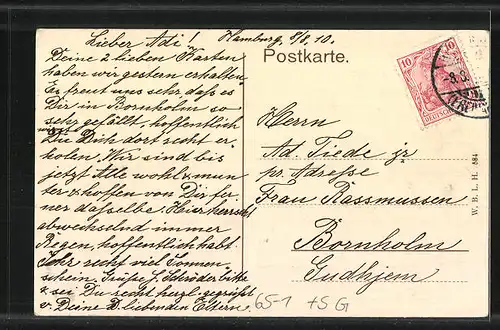 Lieber Adi! Hamburg, 8/8. 10.
Deine 2 lieben Karten
haben wir gestern erhalten
Es freut uns sehr, daß es
Dir in Bornholm so
sehr gefällt, hoffentlich
wirst
Du Dich dort recht er-
holen. Wir sind bis
jetzt Alle wohl & mun-
ter & hoffen von Dir fer-
ner dasselbe. Hier herrscht
abwechselnd immer
Regen, hoffentlich habt
Ihr recht viel Sonnen-
schein. Grüße J. Schröder bitte
& sei Du recht herzl. gegrüßt
v. Deine D. liebenden Eltern.
Postkarte.
10 10
Herrn
Ad. Tiede jr
pr. Adresse
Frau Rassmussen
Bornholm
Gudhjem
W. B. L. H. 884
65-1 +S G